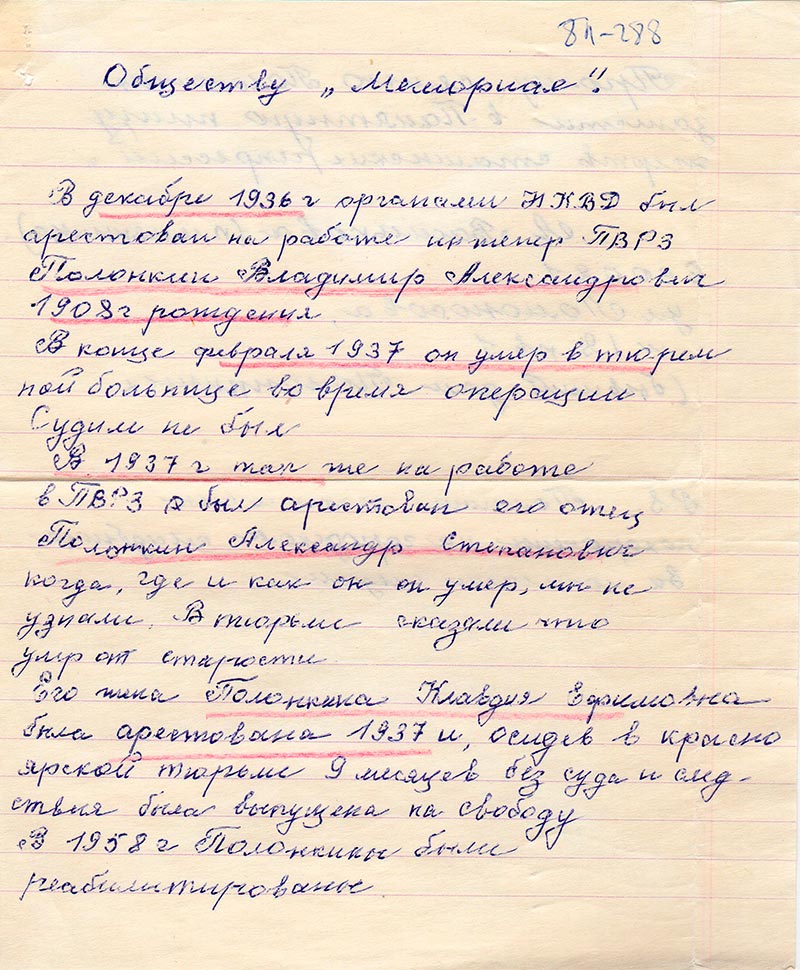 8П-288
Обществу „Мемориал".
В декабре 1936 г органами НКВД был
арестован на работе инженер ПВРЗ
Полонкин Владимир Александрович
1908г рождения.
В конце февраля 1937 он умер в тюрем
ной больнице во время операции
Судим не был
В 1937 г так же на работе
в ПВРЗ был арестован его отец
Полонкин Александр Степанович
когда, где и как он он умер, мы не
узнали. В тюрьме сказали что
умер от старости.
Его жена Полонкина Клавдия Ефимовна
была арестована 1937 и, осидев в красно
ярской тюрьме 9 месяцев без суда и след-
ствия была выпущена на свободу
В 1958 г Полонкины были
реабилитированы.